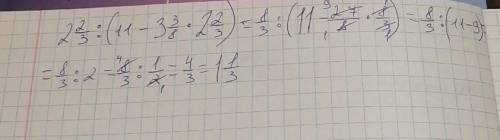 2 2/3 : (11 - 3 3/8 · 2 2/3) = 8/3 : (11 - 27/8 · 8/3) = 8/3 : (11-9)
= 8/3 : 2 = 8/3 : 1/2 = 4/3 = 1 1/3